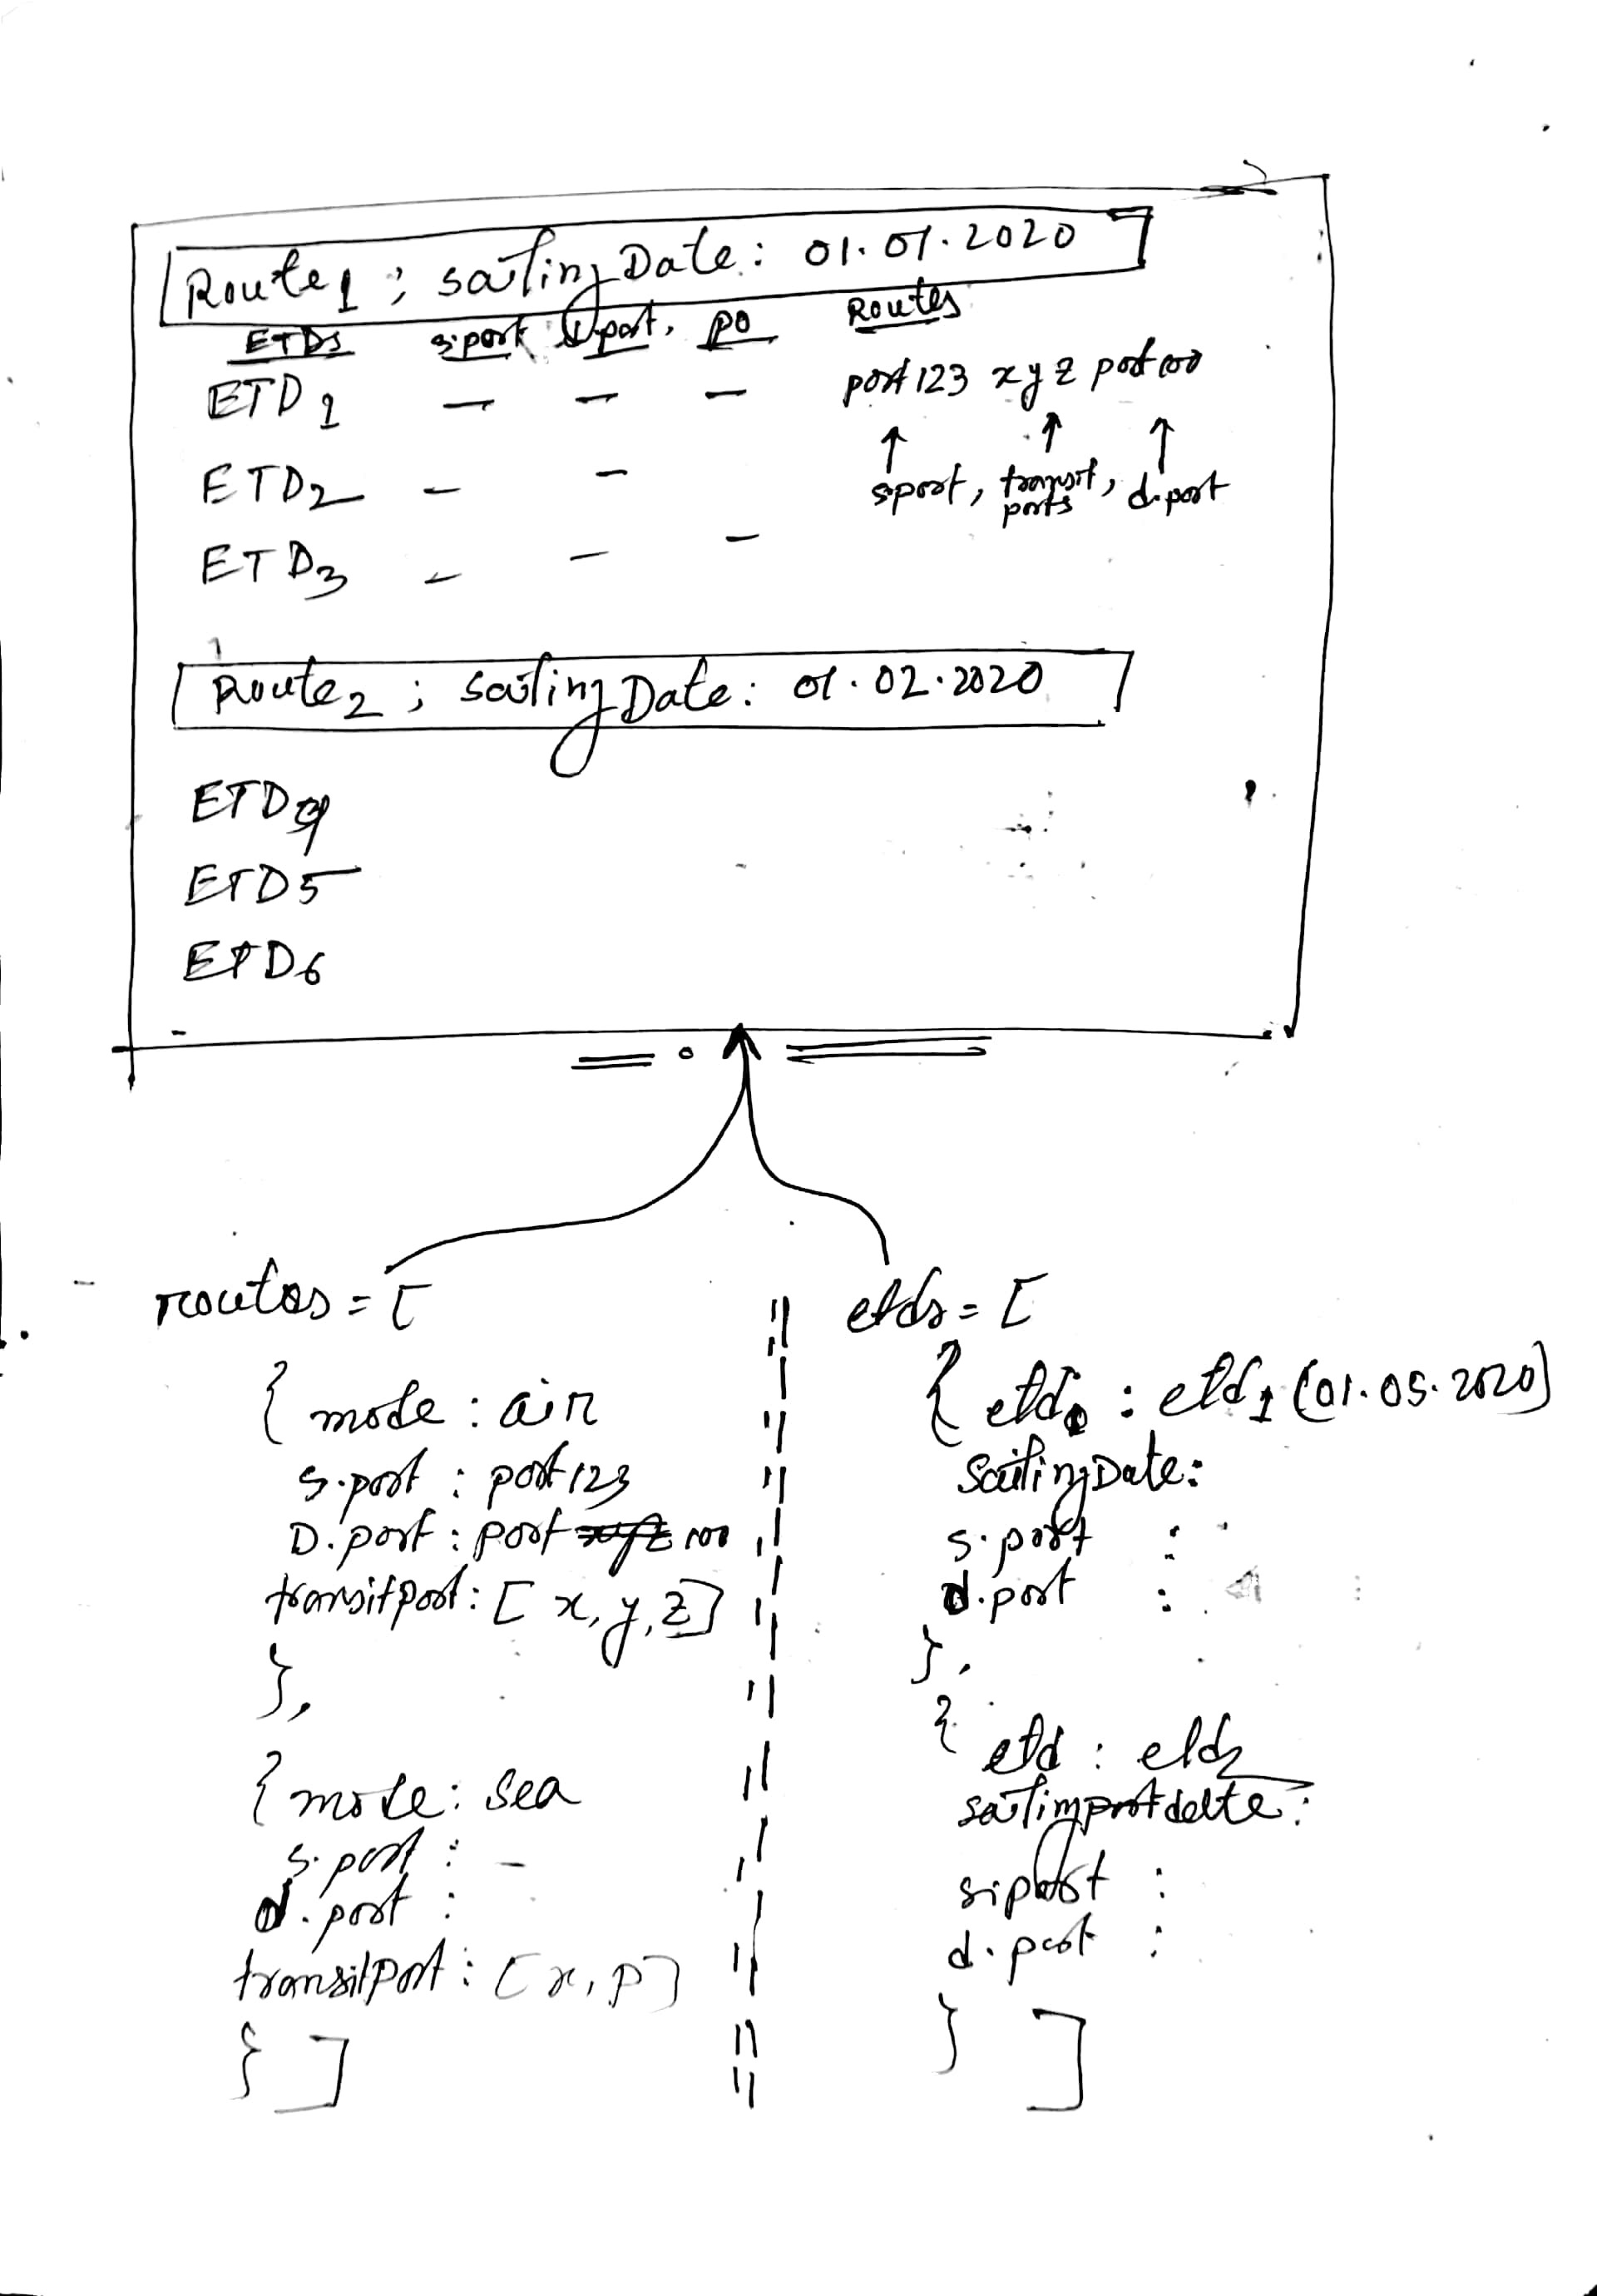 Route1 ; sailingDate: 01.01.2020
ETDs s.port d.port, PO Routes
ETD1 — — — port123 x y z port100
sport, transit ports, d.port
ETD2 — —
ETD3 — — —
Route2 ; sailingDate: 01.02.2020
ETD4
ETD5
ETD6
routes = [
{ mode : air
s.port : port123
D.port : port 100
transitport : [ x, y, z ]
},
{ mode : sea
s.port : -
d.port :
transitport : [ x, p ]
} ]
etds = [
{ etd : etd1 (01.05.2020)
SailingDate:
s.port :
d.port :
},
{ etd : etd2
s.port :
d.port :
} ]